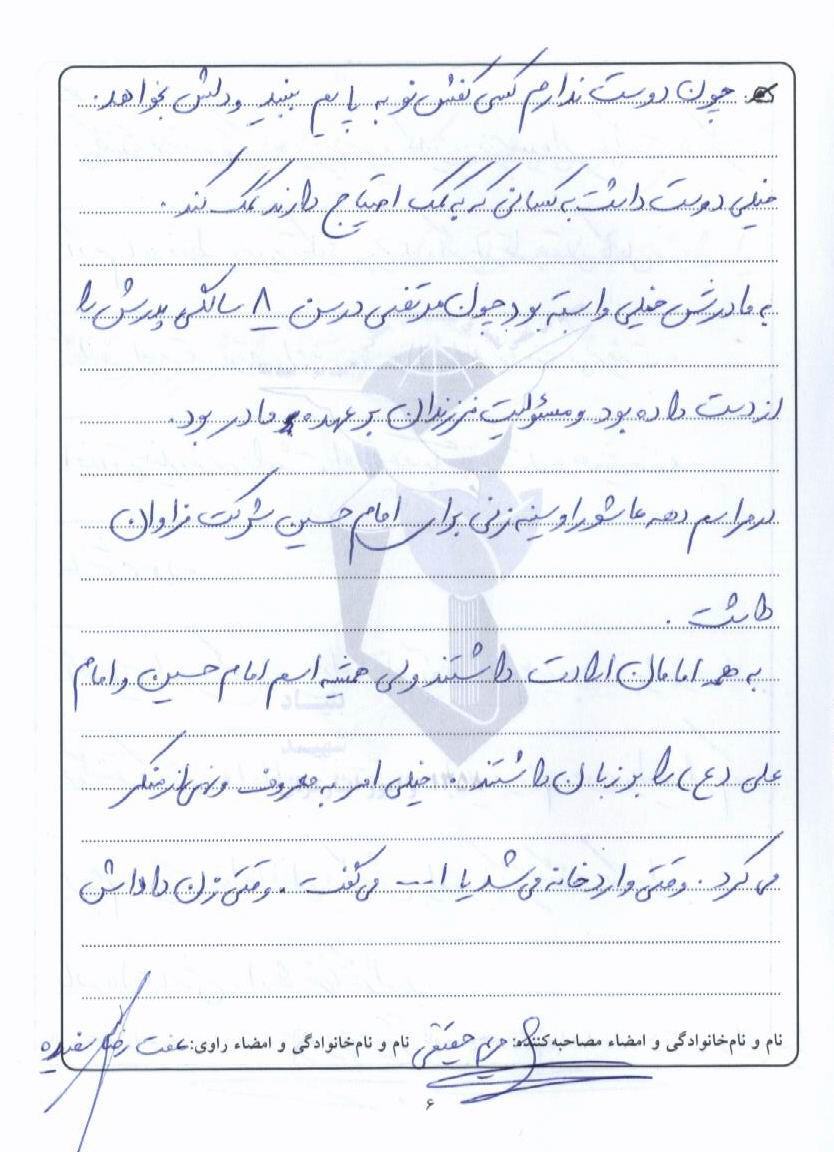 چون دوست ندارم کسی کفش نو به پایم ببیند و دلش بخواهد.
خیلی دوست داشت به کسانی که به کمک احتیاج دارند کمک کند.
به مادرش خیلی وابسته بود چون مرتضی در سن ۸ سالگی پدرش را
از دست داده بود و مسئولیت فرزندان بر عهده مادر بود.
در مراسم دهه عاشورا و سینه زنی برای امام حسین شرکت فراوان
داشت.
به همه امامان ارادت داشتند ولی همیشه اسم امام حسین و امام
علی (ع) را بر زبان داشتند. خیلی امر به معروف و نهی از منکر
می کرد. وقتی وارد خانه می شد یا ا... می گفت. وقتی زن داداش
نام و نام‌خانوادگی و امضاء مصاحبه‌کننده: مریم حقیقی نام و نام‌خانوادگی و امضاء راوی: عفت
۶